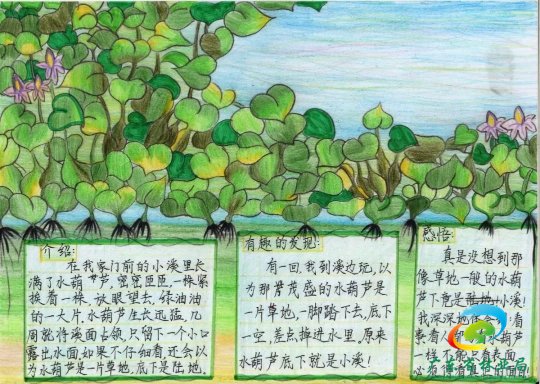 介绍:
在我家门前的小溪里长
满了水葫芦,密密匝匝,一株紧
挨着一株,放眼望去,绿油油
的一大片,水葫芦生长迅猛,几
周就将溪面占领,只留下一个小口
露出水面,如果不仔细看,还会以
为水葫芦是一片草地,底下是陆地。
有趣的发现:
有一回,我到溪边玩,以
为那岸茂盛的水葫芦是
一片草地,一脚踏下去,底下
一空,差点掉进水里。原来
水葫芦底下就是小溪!
感悟:
真是没想到那
像草地一般的水葫
芦下竟是小溪!
我深深地体会 看
待人 水葫芦
一样,不能只看表面,
必须 的